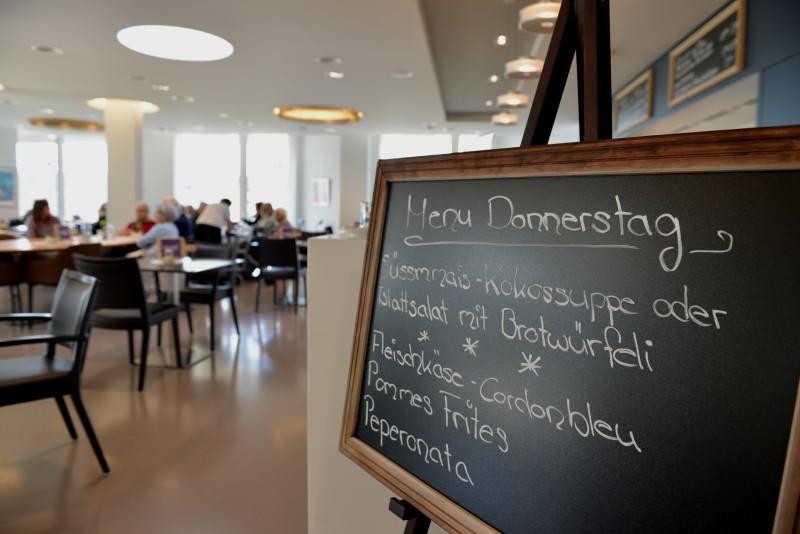 Menu Donnerstag
Süssmais-Kokossuppe oder
Blattsalat mit Brotwürfeli
* * *
Fleischkäse-Cordonbleu
Pommes Frites
Peperonata